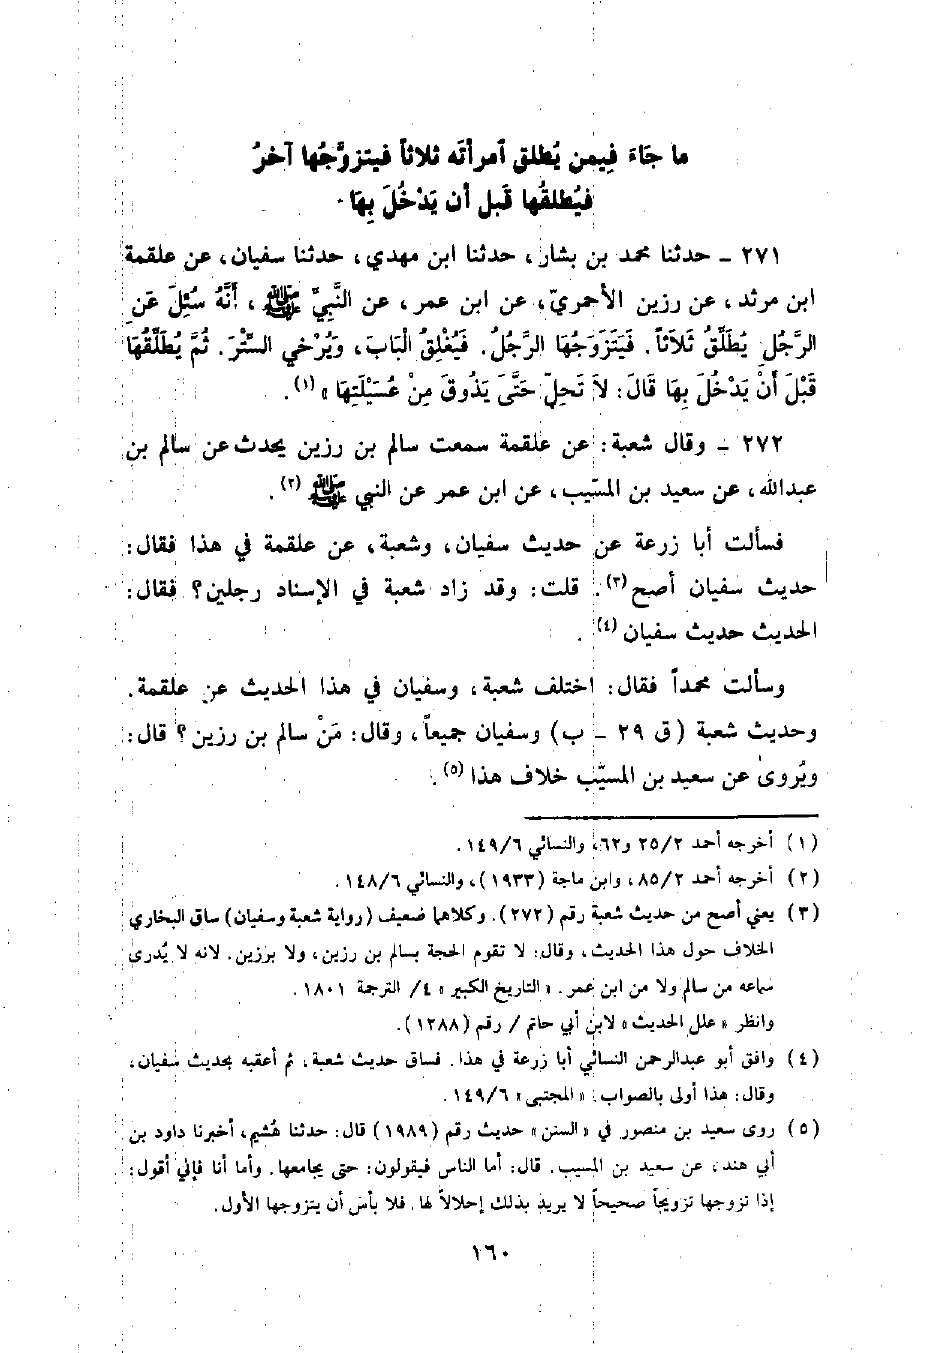 ما جَاءَ فِيمن يُطلق آمرأتَه ثلاثاً فيتزوَّجُها آخرُ
فيُطلقُها قَبل أن يَدْخُلَ بِهَا.
٢٧١ ـ حدثنا محمد بن بشار، حدثنا ابن مهدي، حدثنا سفيان، عن علقمة
ابن مرثد، عن رزين الأحمريّ، عن ابن عمر، عن النَّبِيّ ﷺ، أَنَّهُ سُئِلَ عَنِ
الرَّجُلِ يُطَلِّقُ ثَلَاثاً. فَيَتَزَوَجُهَا الرَّجُلُ. فَيُغْلِقُ الْبَابَ، ويُرْخي السِّتْرَ. ثُمَّ يُطَلِّقُهَا
قَبْلَ أَنْ يَدْخُلَ بِهَا قَالَ: لاَ تَحِلّ حَتَّى يَذُوقَ مِنْ عُسَيْلَتِهَا » (١).
٢٧٢ ـ وقال شعبة: عن علقمة سمعت سالم بن رزين يحدث عن سالم بن
عبدالله، عن سعيد بن المسّيب، عن ابن عمر عن النبي ﷺ (٢).
فسألت أبا زرعة عن حديث سفيان، وشعبة، عن علقمة في هذا فقال:
حديث سفيان أصح (٣). قلت: وقد زاد شعبة في الإسناد رجلين؟ فقال:
الحديث حديث سفيان (٤).
وسألت محمداً فقال: اختلف شعبة، وسفيان في هذا الحديث عن علقمة.
وحديث شعبة (ق ٢٩ ـ ب) وسفيان جميعاً، وقال: مَنْ سالم بن رزين؟ قال:
ويُروى عن سعيد بن المسيّب خلاف هذا (٥).
(١) أخرجه أحمد ٢٥/٢ و٦٢، والنسائي ١٤٩/٦.
(٢) أخرجه أحمد ٨٥/٢، وابن ماجة (١٩٣٣)، والنسائي ١٤٨/٦.
(٣) يعني أصح من حديث شعبة رقم (٢٧٢). وكلاهما ضعيف (رواية شعبة وسفيان) ساق البخاري
الخلاف حول هذا الحديث، وقال: لا تقوم الحجة بسالم بن رزين، ولا برزين. لانه لا يُدرى
سماعه من سالم ولا من ابن عمر. « التاريخ الكبير » ٤/ الترجمة ١٨٠١.
وانظر « علل الحديث » لابن أبي حاتم / رقم (١٢٨٨).
(٤) وافق أبو عبدالرحمن النسائي أبا زرعة في هذا. فساق حديث شعبة، ثم أعقبه بحديث سفيان،
وقال: هذا أولى بالصواب. « المجتبى » ١٤٩/٦.
(٥) روى سعيد بن منصور في « السنن » حديث رقم (١٩٨٩) قال: حدثنا هُشيم، أخبرنا داود بن
أبي هند، عن سعيد بن المسيب. قال: أما الناس فيقولون: حتى يجامعها. وأما أنا فإني أقول:
إذا تزوجها تزويجاً صحيحاً لا يريد بذلك إحلالاً لها. فلا بأس أن يتزوجها الأول.
١٦٠